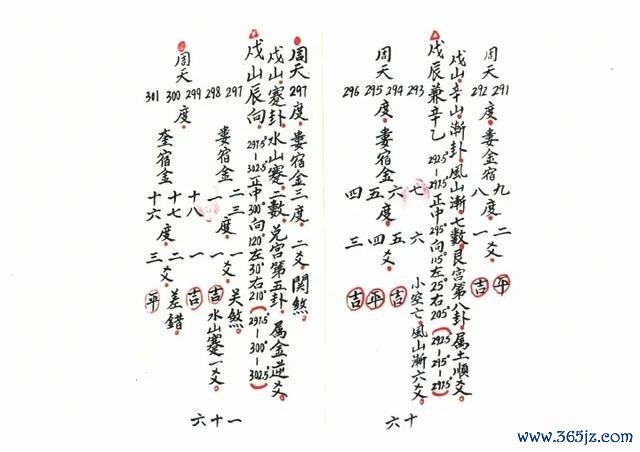 周天 291 292 度。婁金宿 九 八 度。二 一 爻。平 吉
戌山辛山漸卦。風山漸七數。艮宮第八卦。屬土順爻。
戌辰兼辛乙。292.5°—297.5°正中295°向115°左25°右205°(292.5°—295°—297.5°)
周天 293 294 295 296 度。婁宿金 七 六 五 四 度。六 五 四 三 爻。小空亡。風山漸六爻。吉 平 吉
六十
周天297度。婁宿金三度。二爻。關煞。
戌山蹇卦。水山蹇二數。兌宮第五卦。屬金逆爻。
戌山辰向。297.5°—302.5°正中300°向120°左30°右210°(297.5°—300°—302.5°)
周天 297 298 299 300 301 度。
婁宿金 二三度 一 一 一爻。关煞 吉 水山蹇一爻。
奎宿金 十八 十七 十六 度。一 二 三 爻。吉 差錯。平
六十一
www.365jz.com